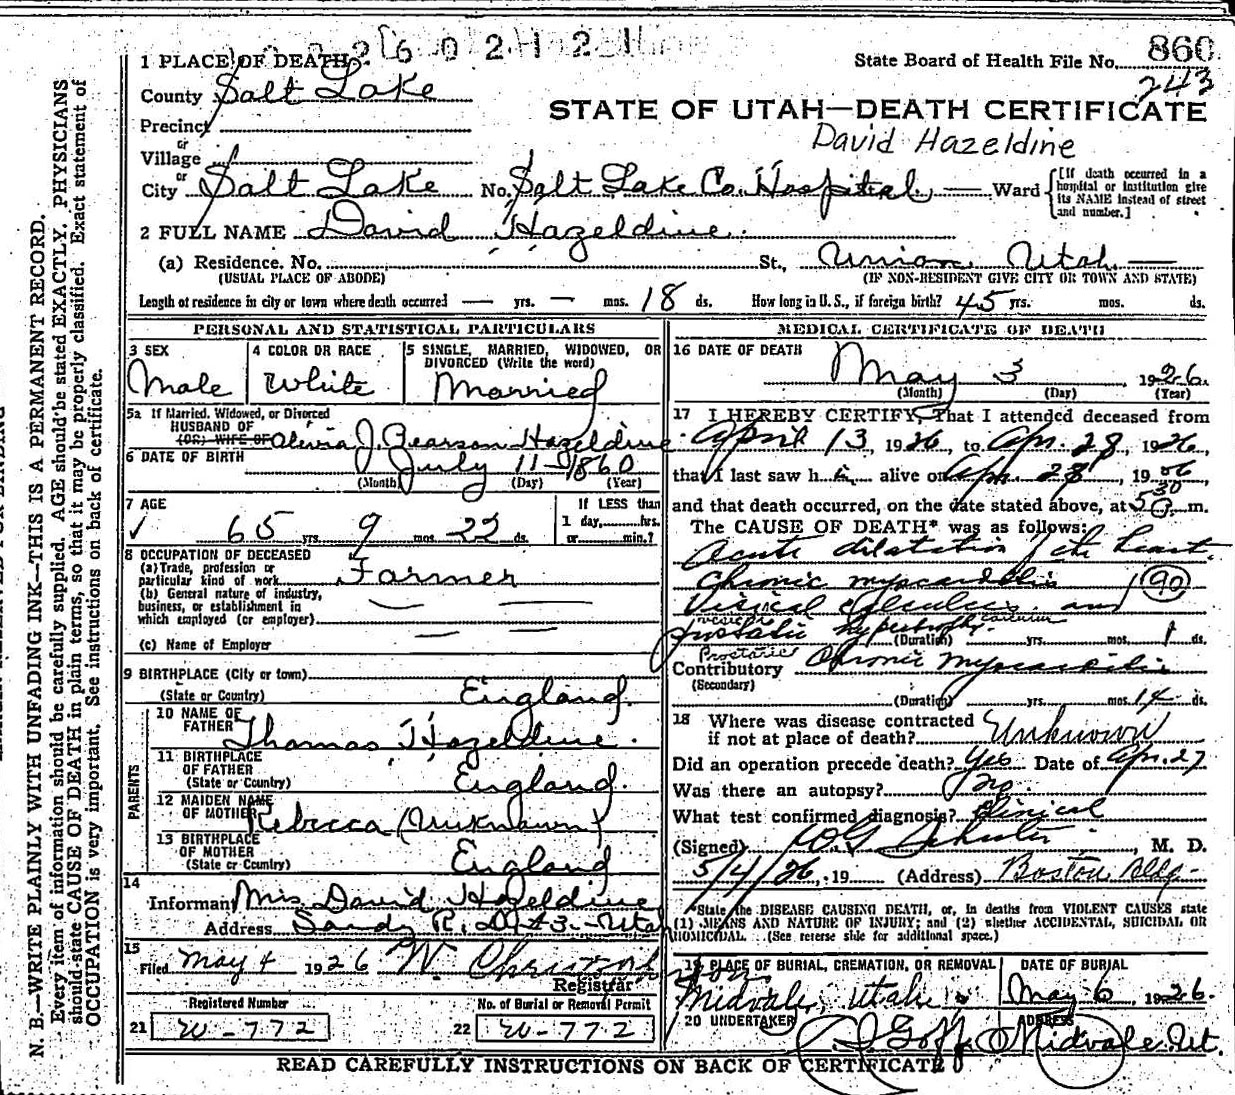 2602
State Board of Health File No. 860
243
1 PLACE OF DEATH
County Salt Lake
STATE OF UTAH—DEATH CERTIFICATE
Precinct
David Hazeldine
or
Village
or
City Salt Lake No. Salt Lake Co. Hospital Ward [If death occurred in a hospital or institution give its NAME instead of street and number.]
2 FULL NAME David Hazeldine.
(a) Residence. No. St., Union Utah
(USUAL PLACE OF ABODE) (IF NON-RESIDENT GIVE CITY OR TOWN AND STATE)
Length of residence in city or town where death occurred — yrs. — mos. 18 ds. How long in U. S., if foreign birth? 45 yrs. mos. ds.
PERSONAL AND STATISTICAL PARTICULARS
3 SEX 4 COLOR OR RACE 5 SINGLE, MARRIED, WIDOWED, OR
DIVORCED (Write the word)
Male White Married
5a If Married, Widowed, or Divorced
HUSBAND OF
(OR) WIFE OF Olivia J. Pearson Hazeldine
6 DATE OF BIRTH July 11 1860
(Month) (Day) (Year)
7 AGE If LESS than
65 yrs. 9 mos. 22 ds. 1 day, hrs.
or min.?
8 OCCUPATION OF DECEASED
(a) Trade, profession or
particular kind of work Farmer
(b) General nature of industry,
business, or establishment in
which employed (or employer)
(c) Name of Employer
9 BIRTHPLACE (City or town)
(State or Country) England.
PARENTS
10 NAME OF
FATHER Thomas Hazeldine.
11 BIRTHPLACE
OF FATHER
(State or Country) England.
12 MAIDEN NAME
OF MOTHER Rebecca (Unknown)
13 BIRTHPLACE
OF MOTHER
(State or Country) England
14
Informant Mrs David Hazeldine
Address Sandy R.D. #3 - Utah
15
Filed May 4 1926 W.
Registrar
Registered Number No. of Burial or Removal Permit
21 W-772 22 W-772
MEDICAL CERTIFICATE OF DEATH
16 DATE OF DEATH
May 3, 1926.
(Month) (Day) (Year)
17 I HEREBY CERTIFY, That I attended deceased from
April 13, 1926, to Apr. 28, 1926,
that I last saw h alive on Apr. 28, 19
and that death occurred, on the date stated above, at 530 m.
The CAUSE OF DEATH* was as follows:
Acute dilatation of the heart.
Chronic myocarditis 90
Visical Calculus and
vesical calculus
prostatic hypertrophy.
(Duration) yrs. mos. 1 ds.
Prostatic
Contributory Chronic myocarditis
(Secondary)
(Duration) yrs. mos. 14 ds.
18 Where was disease contracted
if not at place of death? Unknown
Did an operation precede death? Yes Date of Apr. 27
Was there an autopsy? no.
What test confirmed diagnosis? Clinical
(Signed) M. D.
5/4/26, 19 (Address) Boston Bldg.
*State the DISEASE CAUSING DEATH, or, in deaths from VIOLENT CAUSES state
(1) MEANS AND NATURE OF INJURY; and (2) whether ACCIDENTAL, SUICIDAL OR
HOMICIDAL. (See reverse side for additional space.)
19 PLACE OF BURIAL, CREMATION, OR REMOVAL DATE OF BURIAL
Midvale, Utah. May 6, 1926.
20 UNDERTAKER ADDRESS
Goff Midvale Ut.
READ CAREFULLY INSTRUCTIONS ON BACK OF CERTIFICATE
N. B.—WRITE PLAINLY WITH UNFADING INK—THIS IS A PERMANENT RECORD.
Every item of information should be carefully supplied. AGE should be stated EXACTLY. PHYSICIANS
should state CAUSE OF DEATH in plain terms, so that it may be properly classified. Exact statement of
OCCUPATION is very important. See instructions on back of certificate.